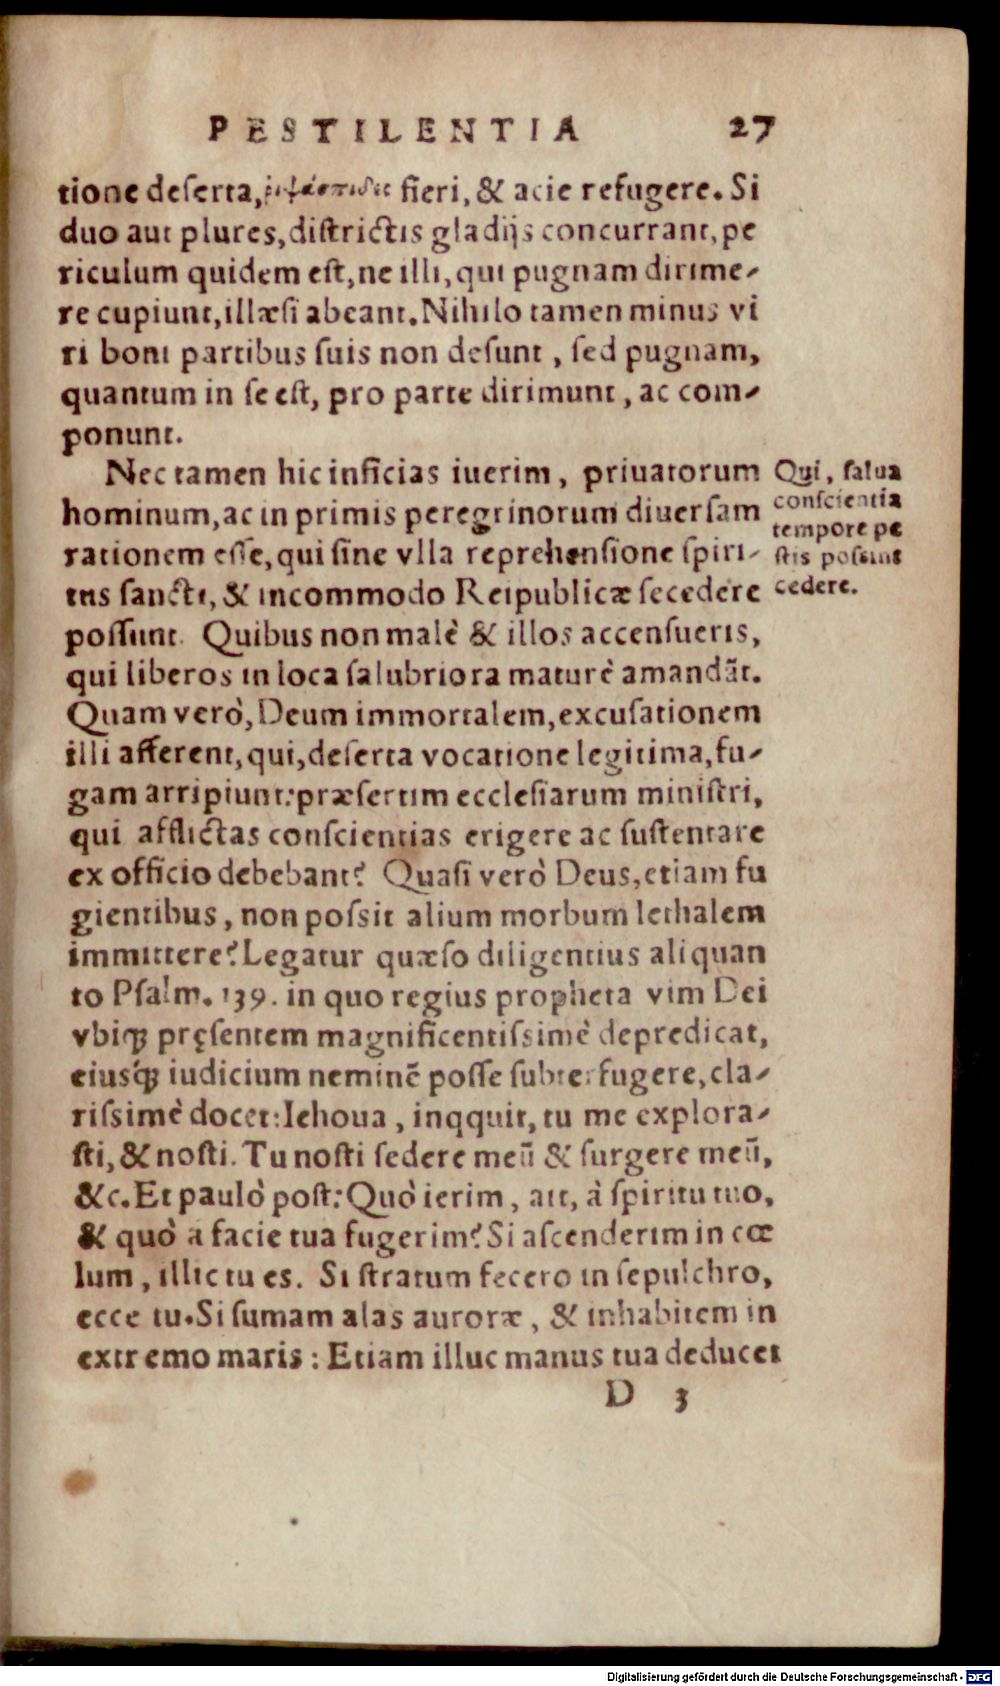 PESTILENTIA 27
tione deserta, ῥιψάσπιδας fieri, & acie refugere. Si
duo aut plures, districtis gladijs concurrant, pe
riculum quidem est, ne illi, qui pugnam dirime-
re cupiunt, illæsi abeant. Nihilo tamen minus vi
ri boni partibus suis non desunt, sed pugnam,
quantum in se est, pro parte dirimunt, ac com-
ponunt.
Nec tamen hic inficias iuerim, priuatorum
hominum, ac in primis peregrinorum diuersam
rationem esse, qui sine vlla reprehensione spiri-
tus sancti, & incommodo Reipublicæ secedere
possunt. Quibus non malè & illos accensueris,
qui liberos in loca salubriora maturè amandãt.
Quam verò, Deum immortalem, excusationem
illi afferent, qui, deserta vocatione legitima, fu-
gam arripiunt: præsertim ecclesiarum ministri,
qui afflictas conscientias erigere ac sustentare
ex officio debebant? Quasi verò Deus, etiam fu
gientibus, non possit alium morbum lethalem
immittere? Legatur quæso diligentius aliquan
to Psalm. 139. in quo regius propheta vim Dei
vbiq́ꝫ pręsentem magnificentissimè depredicat,
eiusq́ꝫ iudicium neminẽ posse subterfugere, cla-
rissimè docet: Iehoua, inqquit, tu me explora-
sti, & nosti. Tu nosti sedere meũ & surgere meũ,
&c. Et paulò post: Quò ierim, ait, à spiritu tuo,
& quò à facie tua fugerim? Si ascenderim in cœ
lum, illic tu es. Si stratum fecero in sepulchro,
ecce tu. Si sumam alas auroræ, & inhabitem in
extremo maris: Etiam illuc manus tua deducet
D 3
Qui, salua
conscientia
tempore pe
stis possint
cedere.
Digitalisierung gefördert durch die Deutsche Forschungsgemeinschaft - DFG